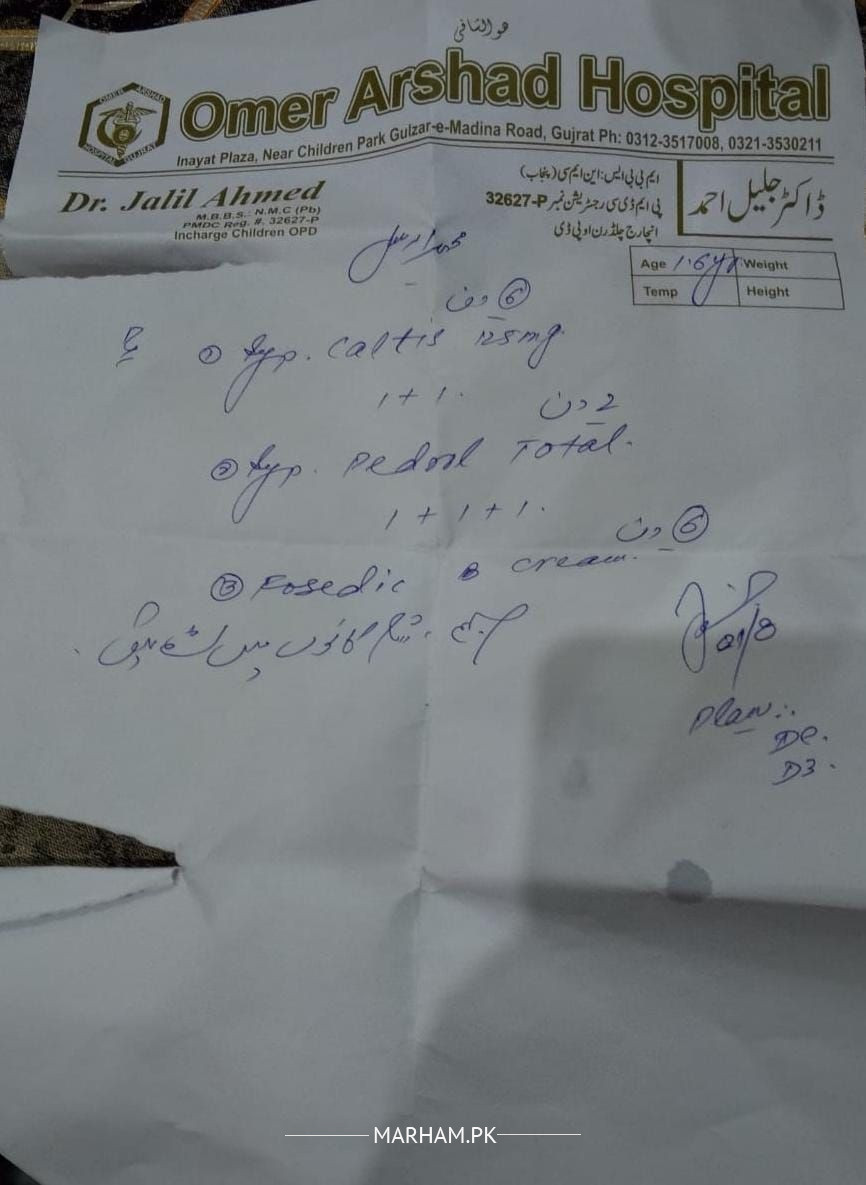 ھوالشافی
Omer Arshad Hospital
OMER ARSHAD
HOSPITAL GUJRAT
Inayat Plaza, Near Children Park Gulzar-e-Madina Road, Gujrat Ph: 0312-3517008, 0321-3530211
Dr. Jalil Ahmed
M.B.B.S.: N.M.C (Pb)
PMDC Reg. #. 32627-P
Incharge Children OPD
ڈاکٹر جلیل احمد
ایم بی بی ایس: این ایم سی (پنجاب)
پی ایم ڈی سی رجسٹریشن نمبر 32627-P
انچارج چلڈرن او پی ڈی
Age 1.6yr Weight
Temp Height
6 دن
① Syp. Caltis 125mg.
1 + 1.
2 دن
② Syp. Pedrol Total.
1 + 1 + 1.
6 دن
③ Fosedic B cream.
صبح، شام کانوں میں
Plan:.
D3.
MARHAM.PK